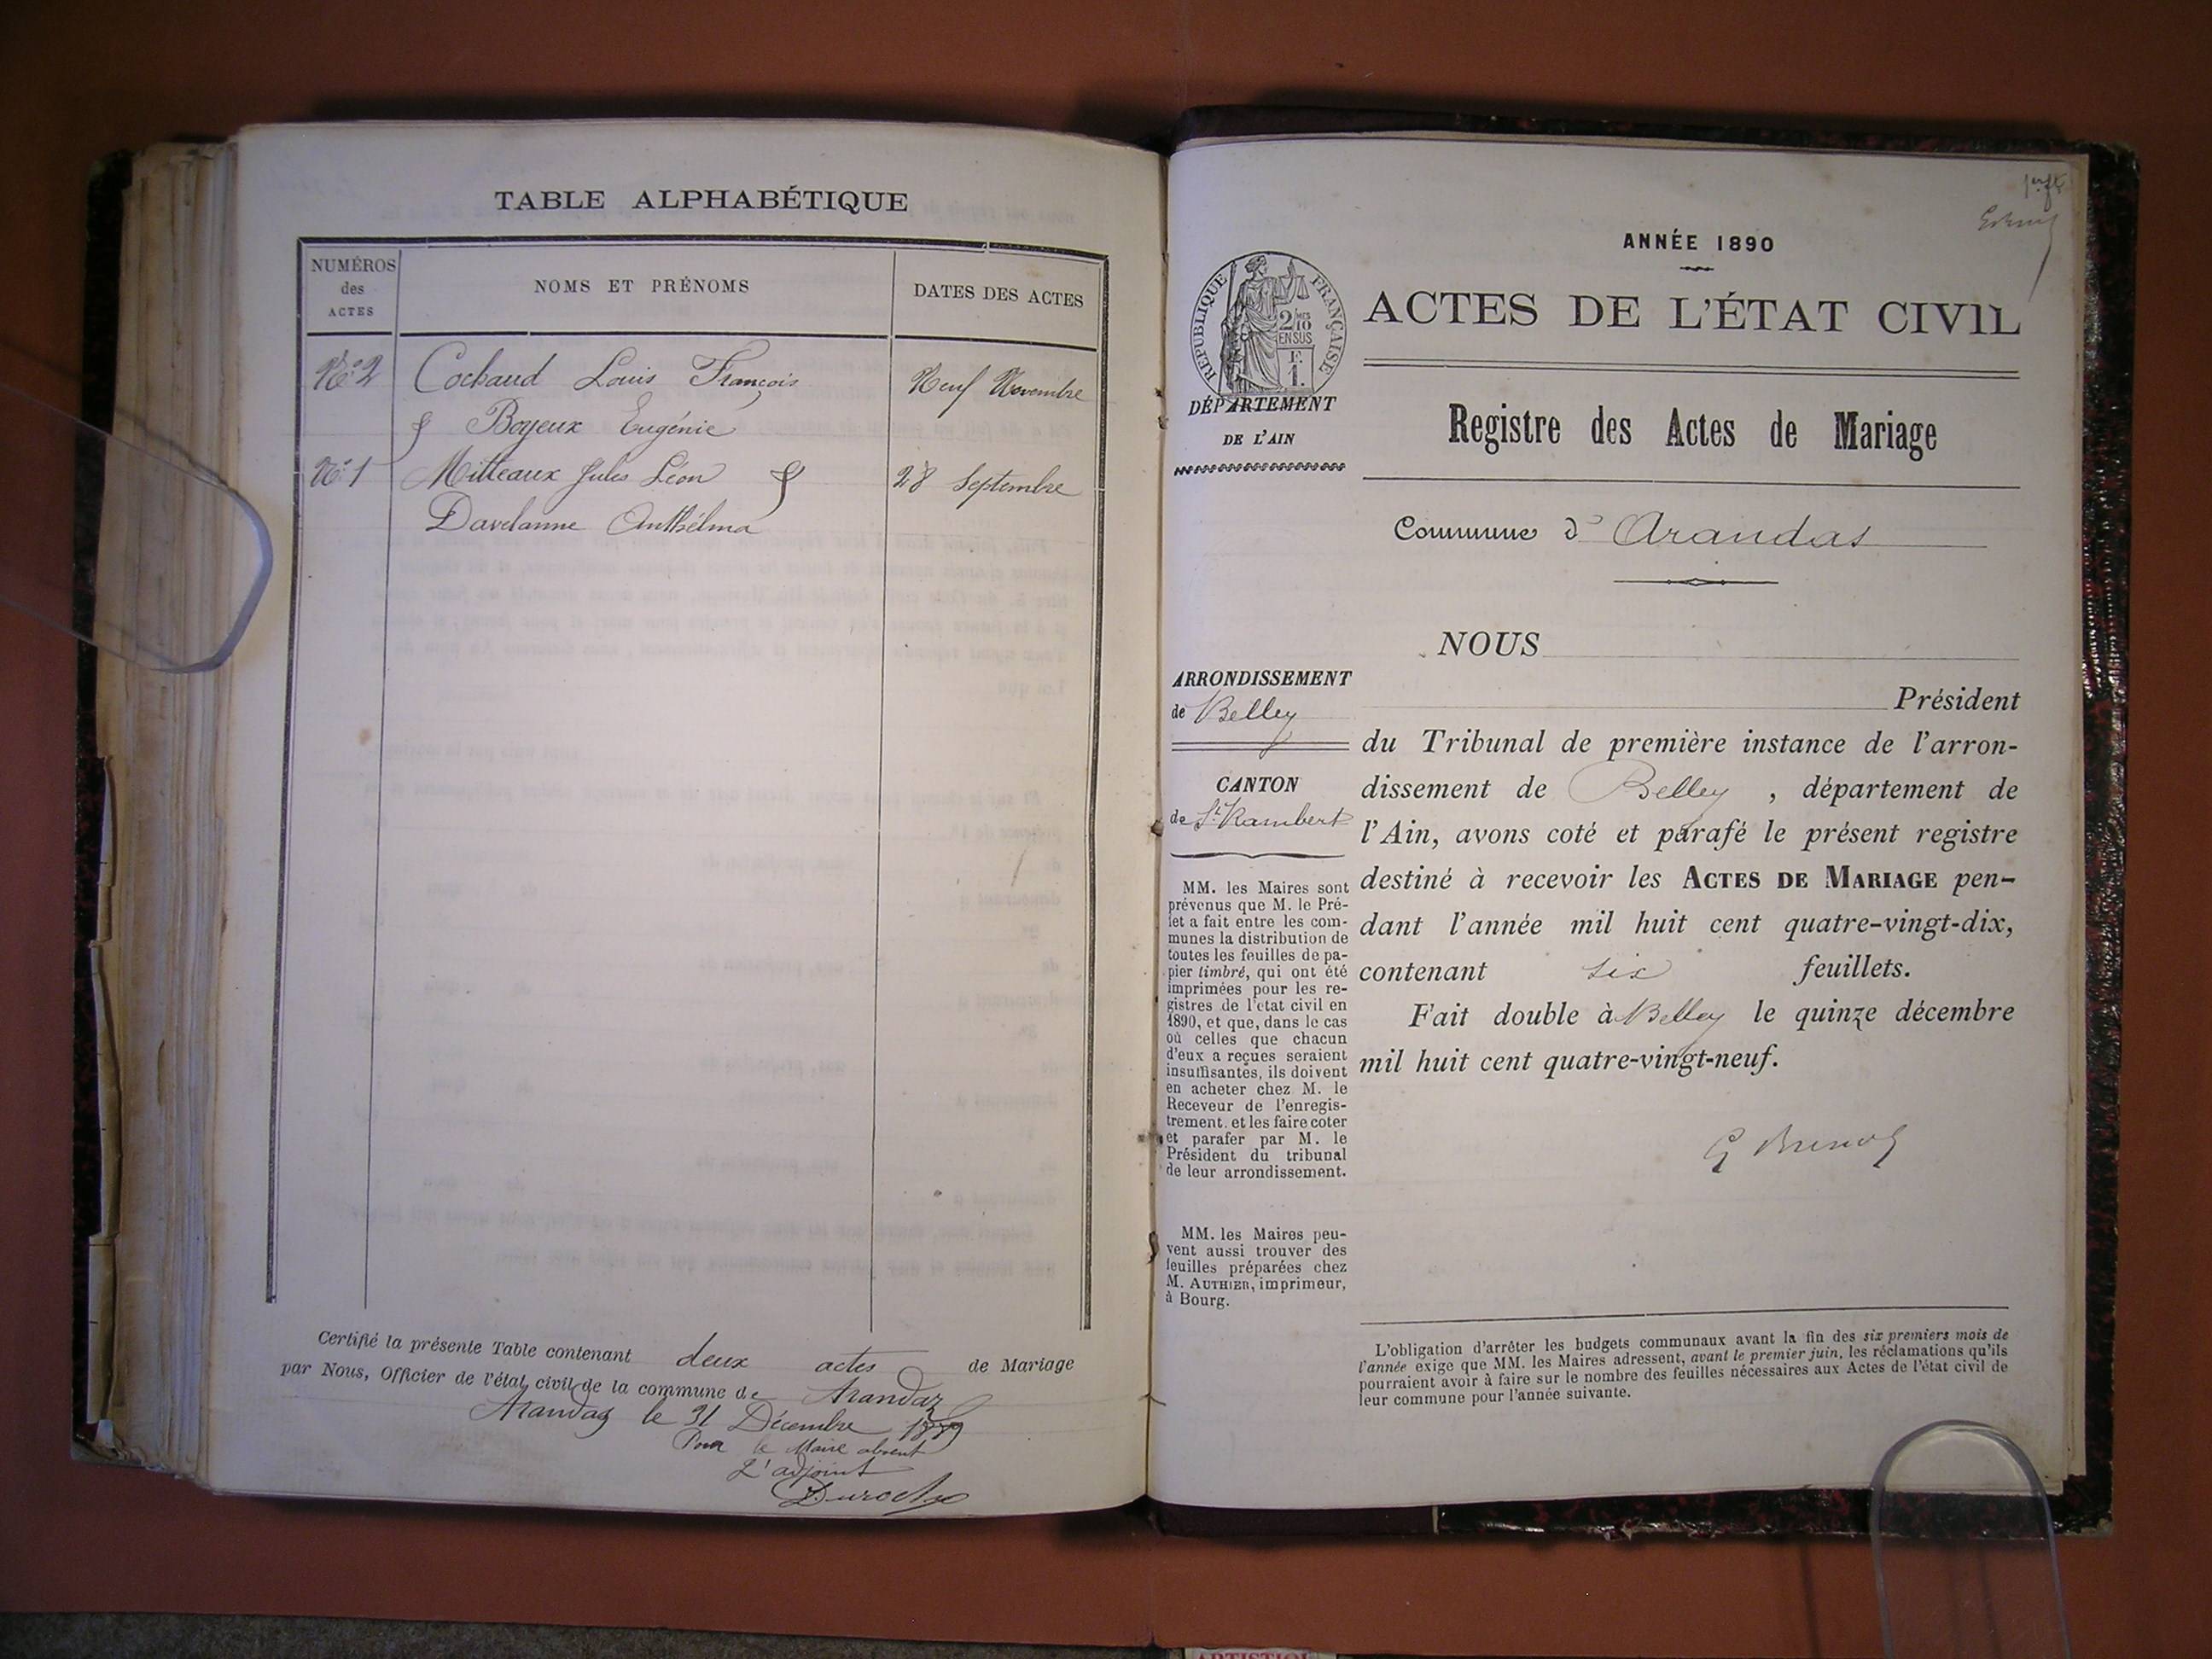 TABLE ALPHABÉTIQUE
NUMÉROS
des
ACTES
NOMS ET PRÉNOMS
DATES DES ACTES
N° 2 Cochaud Louis François Neuf Novembre
& Boyeux Eugénie
N° 1 Mitteaux Jules Léon & 28 Septembre
Davelanne Anthelma
Certifié la présente Table contenant deux actes de Mariage
par Nous, Officier de l'état civil de la commune de Arandaz
Arandas le 31 Décembre
Pour le Maire absent
L'adjoint
ANNÉE 1890
RÉPUBLIQUE FRANÇAISE
2/10
MES
EN SUS
F.
1.
ACTES DE L'ÉTAT CIVIL
DÉPARTEMENT
DE L'AIN
Registre des Actes de Mariage
Commune d' Arandas
ARRONDISSEMENT
de Belley
CANTON
de St Rambert
MM. les Maires sont
prévenus que M. le Pré-
fet a fait entre les com-
munes la distribution de
toutes les feuilles de pa-
pier timbré, qui ont été
imprimées pour les re-
gistres de l'état civil en
1890, et que, dans le cas
où celles que chacun
d'eux a reçues seraient
insuffisantes, ils doivent
en acheter chez M. le
Receveur de l'enregis-
trement, et les faire coter
et parafer par M. le
Président du tribunal
de leur arrondissement.
MM. les Maires peu-
vent aussi trouver des
feuilles préparées chez
M. AUTHIER, imprimeur,
à Bourg.
NOUS
Président
du Tribunal de première instance de l'arron-
dissement de Belley , département de
l'Ain, avons coté et parafé le présent registre
destiné à recevoir les ACTES DE MARIAGE pen-
dant l'année mil huit cent quatre-vingt-dix,
contenant six feuillets.
Fait double à Belley le quinze décembre
mil huit cent quatre-vingt-neuf.
L'obligation d'arrêter les budgets communaux avant la fin des six premiers mois de
l'année exige que MM. les Maires adressent, avant le premier juin, les réclamations qu'ils
pourraient avoir à faire sur le nombre des feuilles nécessaires aux Actes de l'état civil de
leur commune pour l'année suivante.